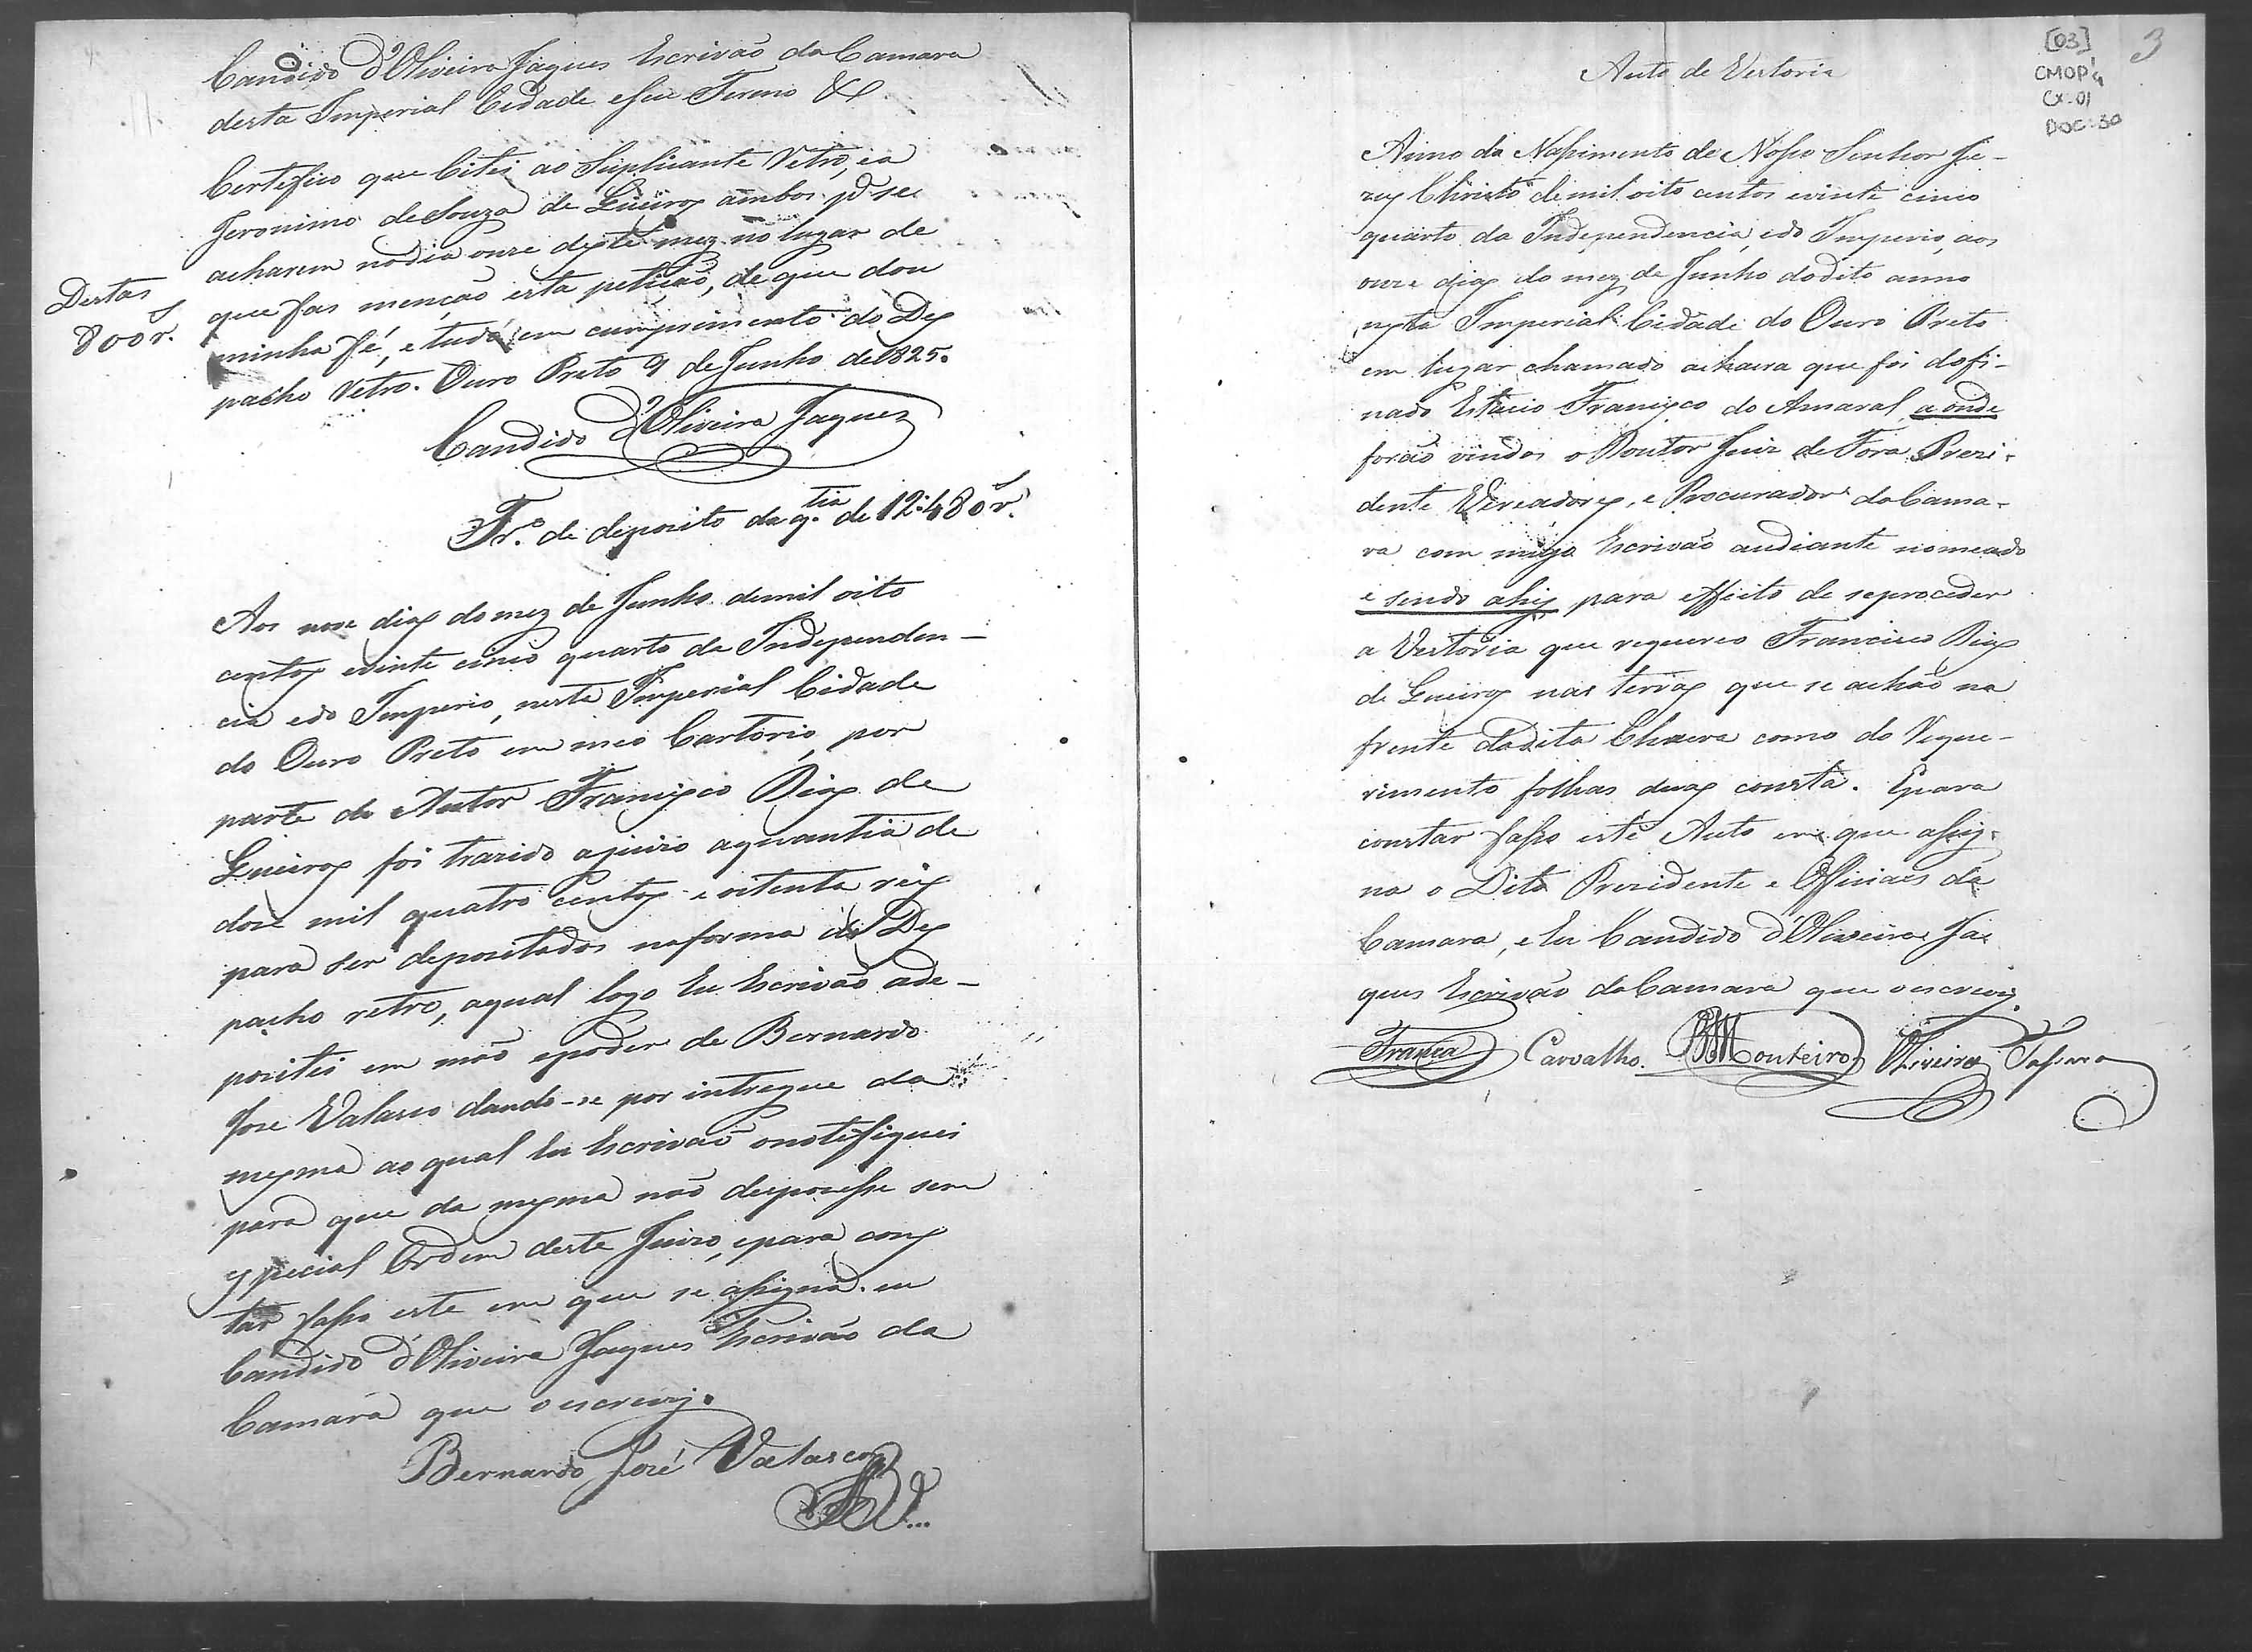 Candido d'Oliveira Jaques Escrivaõ da Camara
desta Imperial Cidade e seu Termo &
Certefico que Citei ao Suplicante Retro, ea
Jeronimo de Souza de Queiroz ambos pª se
acharem nodia onze deste mez no lugar de
que fas mençaõ esta petiçaõ, de que dou
minha fé, e tudo em cumprimento do Des
pacho retro. Ouro Preto 9 de Junho de 1825.
Candido d'Oliveira Jaques
Destas
800 rs.
Tr.º de deposito da q.tia de 12:480 rs.
Aos nove dias do mez de Junho demil oito
centos evinte cinco quarto da Independen-
cia edo Imperio, nesta Imperial Cidade
do Ouro Preto em meo Cartorio, por
parte do Autor Francisco Dias de
Queiros foi trazido ajuizo aquantia de
doze mil quatro Centos e oitenta reis
para ser depozitados naforma do Des
pacho retro, aqual logo Eu Escrivaõ ade-
pozitei em maõ epoder de Bernardo
Joze Valasco dando-se por intregue da
mesma ao qual Eu Escrivaõ onotifiquei
para que da mesma naõ despozesse sem
special Ordem deste Juizo, epara cons
tar fasso este em que se assigna. eu
Candido d'Oliveira Jaques Escrivaõ da
Camara que o escrevy.
Bernardo José Valasco
[03]
CMOP
CX-01
DOC-30
3
Auto de Vestoria
Anno do Nassimento de Nosso Senhor Je-
zus Christo demil oito centos evinte cinco
quarto da Independencia, edo Imperio, aos
onze dias do mez de Junho dodito anno
nesta Imperial Cidade do Ouro Preto
em lugar chamado achacra que foi dofi-
nado Estacio Francisco do Amaral, a onde
foraõ vindos o Doutor Juiz de Fora Prezi-
dente Vereadores, e Procurador da Cama-
ra com migo Escrivaõ audiante nomeado
e sendo ahy para effeito de seproceder
a Vestoria que requereo Francisco Dias
de Queiros nas terras que se achaõ na
frente dadita Chacra como do Reque-
rimento folhas duas consta. Epara
constar fasso este Auto em que assig-
na o Dito Prezidente e Officiaes da
Camara, e Eu Candido d'Oliveira Ja-
ques Escrivaõ da Camara que o escrevy.
França Carvalho. Monteiro Oliveira